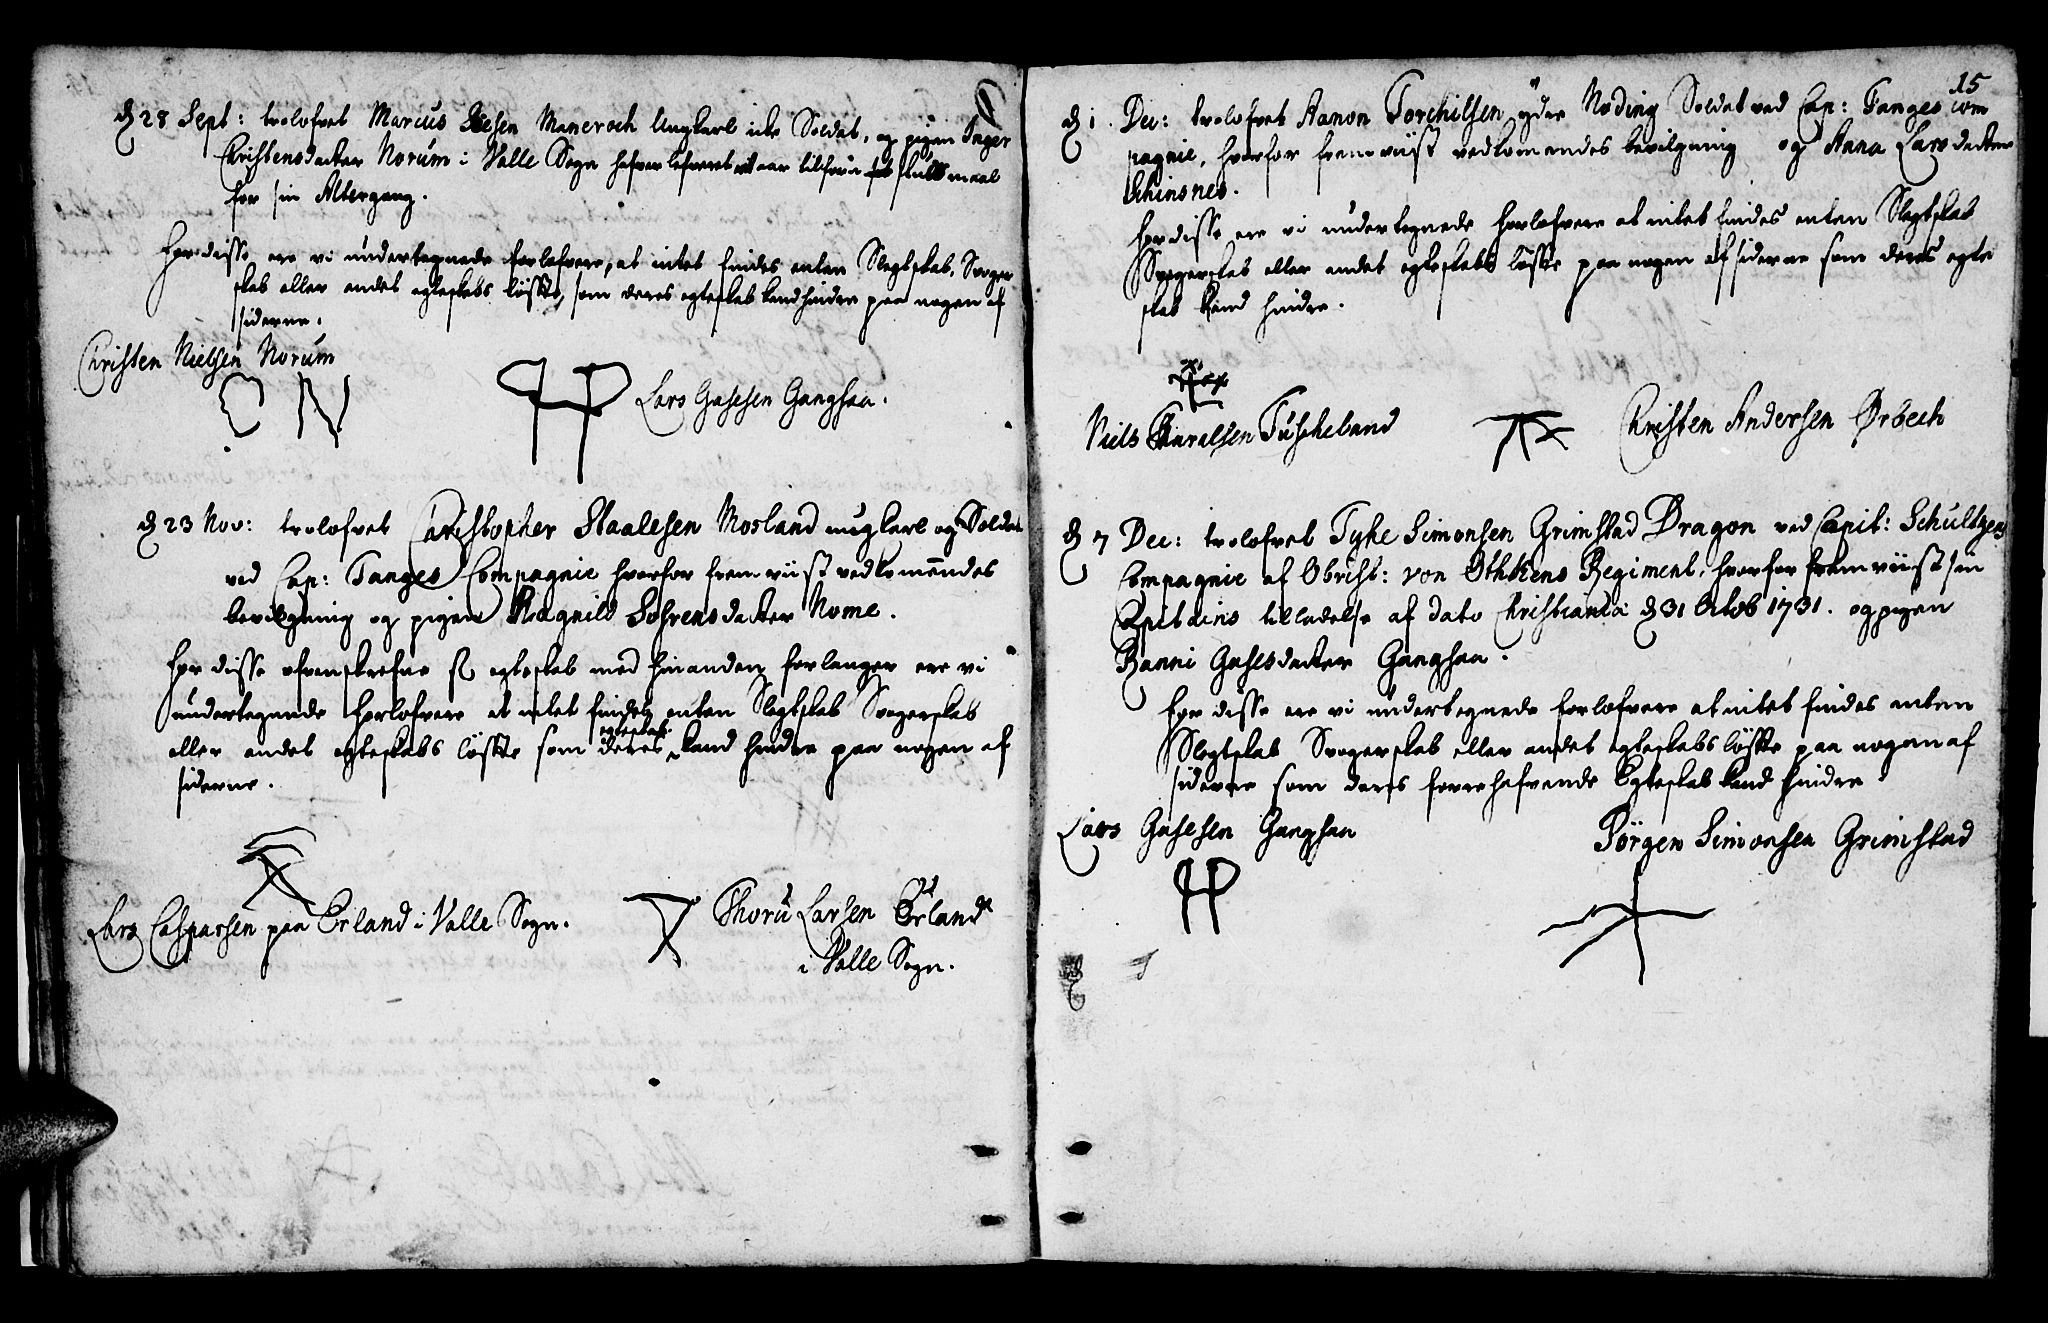 d 28 Sept: trolofvet Marcus Olesen Maneroch Ungkarl icke Soldat, og pigen Inger
Christensdatter Norum i Valle Sogn hafver lefveret aar tilforn skudsmaal
for sin Altergang.
For disse ere vi undertegnede forlofvere, at intet findes enten Slegtskab, Svoger
skab eller andet egteskabs löffte, som deres egteskab kand hindre paa nogen af
siderne.
Christen Nielsen Norum
CN
Lars Gusesen Gangsaa.
d 23 Nov: trolofvet Christopher Staalesen Mosland ungkarl og Soldat
ved Cap: Tanges Compagnie hvorfor fremviist vedkomendes
bevilgning og pigen Ragnild Sohrensdatter Nome.
For disse ofvenskrefne egteskab med hinanden forlanger ere vi
undertegnede forlofvere at intet findes enten Slegtskab Svogerskab
eller andet egteskabs löffte som deres egteskab kand hindre paa nogen af
siderne.
Lars Caspersen paa Orland i Valle Sogn.
Thoru Larsen Orland
i Valle Sogn.
15
d 1. Dec: trolofvet Aamon Torchilsen ydre Nöding Soldat ved Cap: Tanges Com
pagnie, hvorfor fremviist vedkomendes bevilgning og Anna Larsdatter
Schinsnes.
For disse ere vi undertegnede forlofvere at intet findes enten Slegtskab
Svogerskab eller andet egteskabs löffte paa nogen af siderne som deres egte
skab kand hindre.
Niels Tarelsen Tuscheland
Christen Andersen Ørbech
d 7 Dec: trolofvet Tyke Simonsen Grimstad Dragon ved Capit: Schultzes
Compagnie af Obrist: von Othkens Regiment, hvorfor fremviist sin
Capitains tilladelse af dato Christiania d 31 Octob 1731. og pigen
Ranni Gusesdatter Gangsaa.
For disse ere vi undertegnede forlofvere at intet findes enten
Slegtskab Svogerskab eller andet egteskabs löffte paa nogen af
siderne som deres forrehafvende Egteskab kand hindre.
Lars Gusesen Gangsaa
Jörgen Simonsen Grimstad